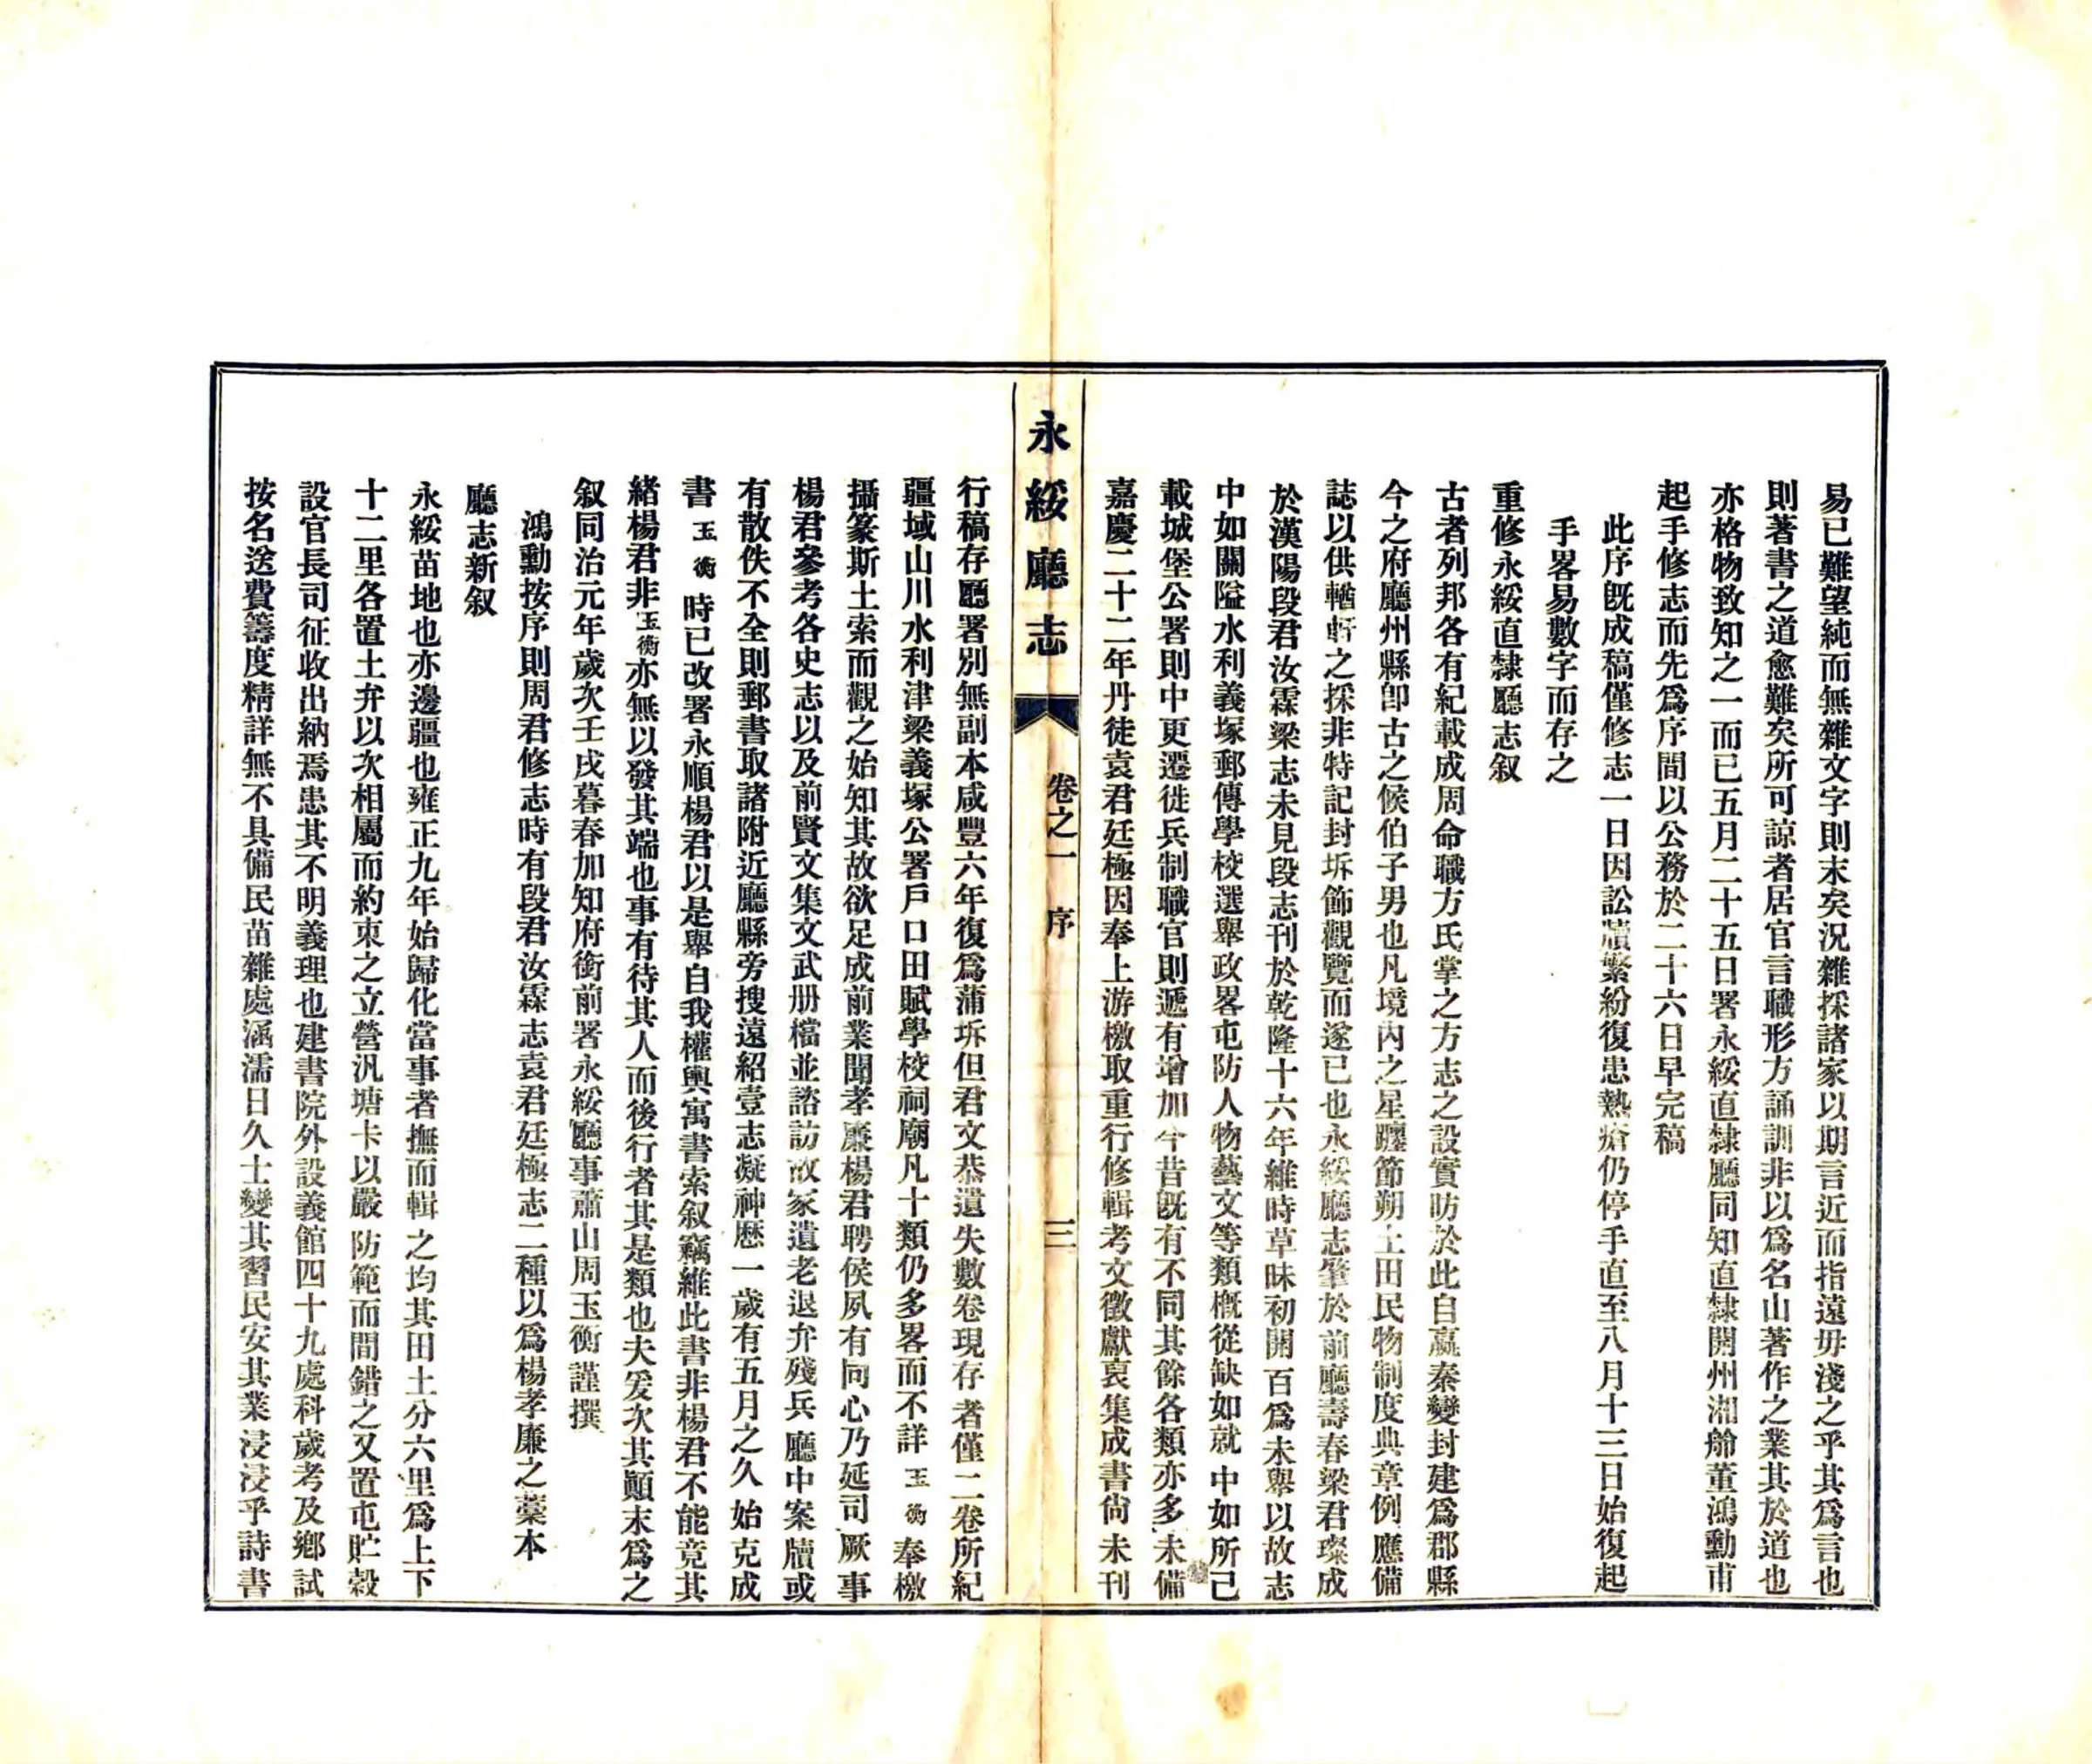 易已難望純而無雜文字則末矣況雜採諸家以期言近而指遠毋淺之乎其爲言也
則著書之道愈難矣所可諒者居官言職形方誦訓非以爲名山著作之業其於道也
亦格物致知之一而已五月二十五日署永綏直隸廳同知直隸開州湘舲董鴻勳甫
起手修志而先爲序間以公務於二十六日早完稿
此序旣成稿僅修志一日因訟牘繁紛復患熱瘡仍停手直至八月十三日始復起
手畧易數字而存之
重修永綏直隸廳志叙
古者列邦各有紀載成周命職方氏掌之方志之設實昉於此自嬴秦變封建爲郡縣
今之府廳州縣卽古之候伯子男也凡境內之星躔節朔土田民物制度典章例應備
誌以供輶軒之採非特記封圻飾觀覽而遂已也永綏廳志肇於前廳壽春梁君璨成
於漢陽段君汝霖梁志未見段志刊於乾隆十六年維時草昧初開百爲未舉以故志
中如關隘水利義塚郵傳學校選舉政畧屯防人物藝文等類槪從缺如就中如所已
載城堡公署則中更遷徙兵制職官則遞有增加今昔旣有不同其餘各類亦多未備
嘉慶二十二年丹徒袁君廷極因奉上游檄取重行修輯考文徵獻裒集成書尙未刊
永綏廳志
卷之一 序
三
行稿存廳署別無副本咸豐六年復爲蒲圻但君文恭遺失數卷現存者僅二卷所紀
疆域山川水利津梁義塚公署戶口田賦學校祠廟凡十類仍多畧而不詳玉衡奉檄
攝篆斯土索而觀之始知其故欲足成前業聞孝廉楊君聘侯夙有同心乃延司厥事
楊君參考各史志以及前賢文集文武册檔並諮訪故家遺老退弁殘兵廳中案牘或
有散佚不全則郵書取諸附近廳縣旁搜遠紹壹志凝神歷一歲有五月之久始克成
書玉衡時已改署永順楊君以是舉自我權輿寓書索叙竊維此書非楊君不能竟其
緒楊君非玉衡亦無以發其端也事有待其人而後行者其是類也夫爰次其顛末爲之
叙同治元年歲次壬戌暮春加知府銜前署永綏廳事蕭山周玉衡謹撰
鴻勳按序則周君修志時有段君汝霖志袁君廷極志二種以爲楊孝廉之藁本
廳志新叙
永綏苗地也亦邊疆也雍正九年始歸化當事者撫而輯之均其田土分六里爲上下
十二里各置土弁以次相屬而約束之立營汛塘卡以嚴防範而間錯之又置屯貯穀
設官長司征收出納焉患其不明義理也建書院外設義館四十九處科歲考及鄉試
按名送費籌度精詳無不具備民苗雜處涵濡日久士變其習民安其業浸浸乎詩書